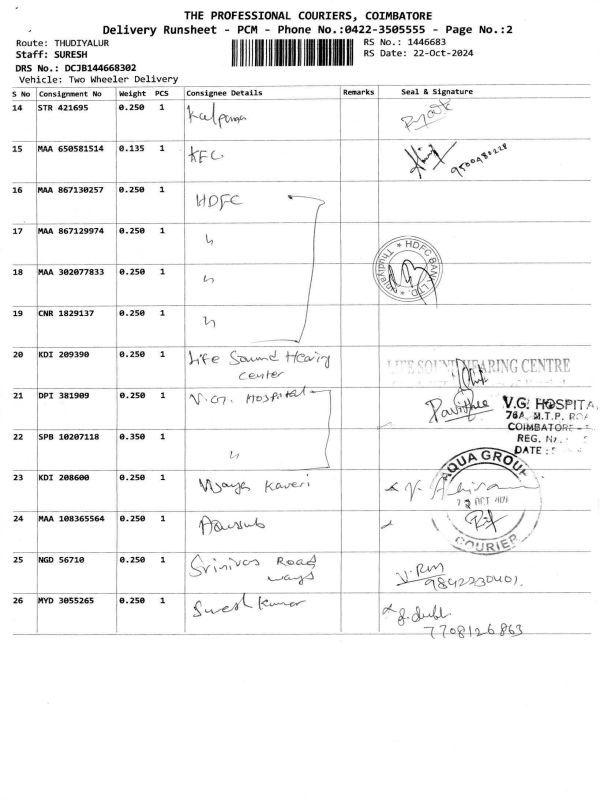 THE PROFESSIONAL COURIERS, COIMBATORE
Delivery Runsheet - PCM - Phone No.:0422-3505555 - Page No.:2
Route: THUDIYALUR
RS No.: 1446683
Staff: SURESH
RS Date: 22-Oct-2024
DRS No.: DCJB144668302
Vehicle: Two Wheeler Delivery
S No Consignment No Weight PCS Consignee Details Remarks Seal & Signature
14 STR 421695 0.250 1 Kalpana
15 MAA 650581514 0.135 1 KFC 9500480228
16 MAA 867130257 0.250 1 HDFC
17 MAA 867129974 0.250 1 〃
HDFC BANK LTD. * Thudiyalur *
18 MAA 302077833 0.250 1 〃
19 CNR 1829137 0.250 1 〃
20 KDI 209390 0.250 1 Life Sound Hearing
center
LIFE SOUND HEARING CENTRE
21 DPI 381909 0.250 1 V.G. Hospital
Pavithra
V.G. HOSPITA
76A, M.T.P. ROA
COIMBATORE -
REG. No.
DATE :
22 SPB 10207118 0.350 1 〃
23 KDI 208600 0.250 1 Vijaya Kaveri
AQUA GROUP
OCT
COURIER
24 MAA 108365564 0.250 1
25 NGD 56710 0.250 1 Srinivas Road
ways
V.RM
9842230401.
26 MYD 3055265 0.250 1 Suresh Kumar
7708126863